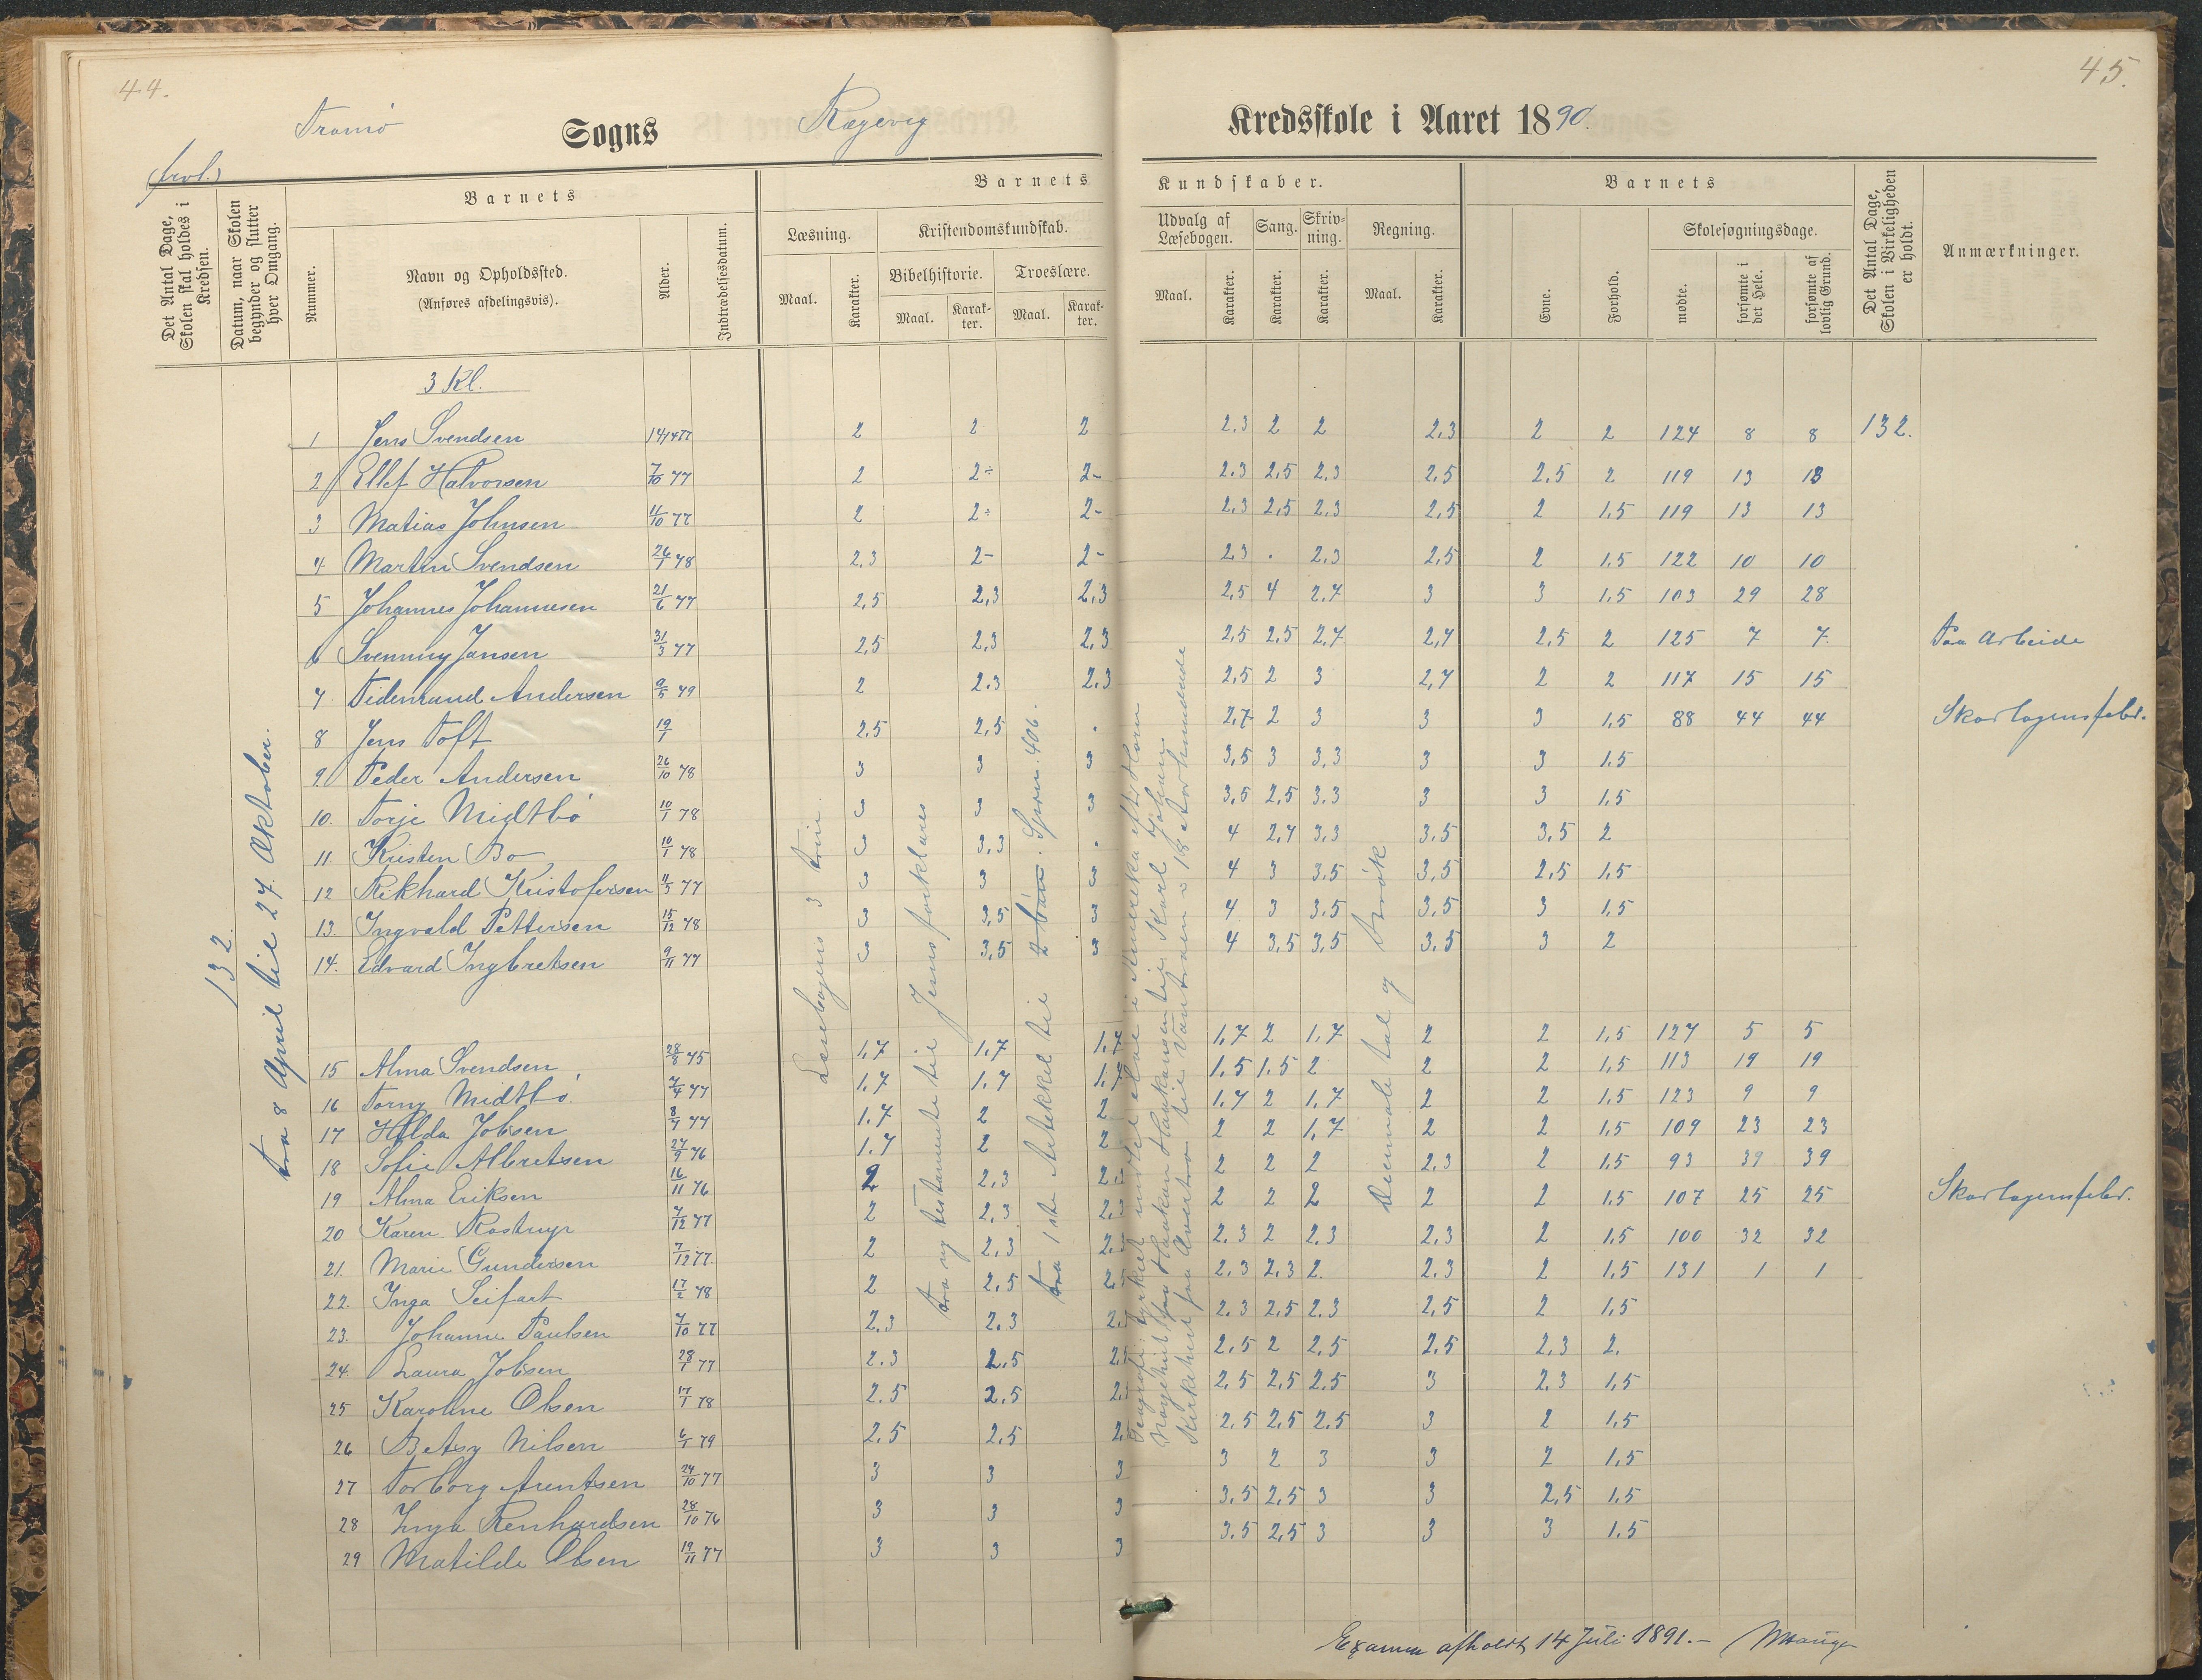 44.
45.
Tromø Sogns Rægevig Kredsskole i Aaret 1890.
Det Antal Dage, Skolen skal holdes i Kredsen.
Datum, naar Skolen begynder og slutter hver Omgang.
Nummer.
Barnets
Navn og Opholdssted.
(Anføres afdelingsvis).
Alder.
Indtrædelsesdatum.
Barnets Kundskaber.
Læsning.
Maal.
Karakter.
Kristendomskundskab.
Bibelhistorie.
Maal.
Karakter.
Troeslære.
Maal.
Karakter.
Udvalg af Læsebogen.
Maal.
Karakter.
Sang.
Karakter.
Skrivning.
Karakter.
Regning.
Maal.
Karakter.
Barnets
Evne.
Forhold.
Skolesøgningsdage.
mødte.
forsømte i det Hele.
forsømte af lovlig Grund.
Det Antal Dage, Skolen i Virkeligheden er holdt.
Anmærkninger.
132.
fra 8 April til 27. Oktober.
Læsebogens 3 trin.
fra ny testamente til Jesus forklares
fra 1ste Artekkel til
406.
Desimale tal og brøk
3 Kl.
1 Jens Svendsen 14/1 77 2 2 2 2.3 2 2 2.3 2 2 124 8 8 132.
2 Ellef Halvorsen 7/10 77 2 2÷ 2- 2.3 2,5 2.3 2.5 2.5 2 119 13 13
3 Matias Johnsen 11/10 77 2 2÷ 2- 2.3 2,5 2.3 2,5 2 1.5 119 13 13
4. Martin Svendsen 26/1 78 2.3 2- 2- 2.3 . 2.3 2,5 2 1.5 122 10 10
5 Johannes Johannesen 21/6 77 2,5 2,3 2.3 2,5 4 2.7 3 3 1.5 103 29 28
6 Svenning Jansen 31/3 77 2,5 2,3 2,3 2,5 2.5 2,7 2,7 2,5 2 125 7 7. Paa Arbeide
7. Tidemand Andersen 9/5 79 2 2.3 2.3 2,5 2 3 2,7 2 2 117 15 15
8 Jens Toft 19/1 2,5 2,5 . 2,7 2 3 3 3 1.5 88 44 44 Skarlagensfeber.
9. Peder Andersen 26/10 78 3 3 3 3,5 3 3,3 3 3 1.5
10. Torje Midtbø 10/1 78 3 3 3 3,5 2,5 3.3 3 3 1,5
11. Kristen Bo 10/1 78 3 3,3 . 4 2,7 3,3 3.5 3.5 2
12 Rikhard Kristofersen 11/5 77 3 3 3 4 3 3.5 3,5 2,5 1,5
13. Ingvald Pettersen 15/12 78 3 3,5 3 4 3 3.5 3.5 3 1,5
14. Edvard Ingbretsen 9/11 77 3 3,5 3 4 3,5 3,5 3.5 3 2
15 Alma Svendsen 28/8 75 1,7 1.7 1.7 1.7 2 1.7 2 2 1,5 127 5 5
16 Torny Midtbø. 7/4 77 1.7 1.7 1.7 1.5 1.5 2 2 2 1,5 113 19 19
17 Hilda Jobsen 8/7 77 1.7 2 2 1.7 2 1.7 2 2 1.5 123 9 9
18 Sofie Albretsen 27/9 76 1.7 2 2 2 2 1,7 2 2 1,5 109 23 23
19 Alma Eriksen 16/11 76 2 2,3 2 2 2 2.3 2 1.5 93 39 39
20 Karen Rostrup 7/12 77 2 2,3 2 2 2 2 2 1.5 107 25 25 Skarlagensfeber.
21. Marie Gundersen 7/12 77. 2 2,3 2.3 2 2.3 2,3 2 1,5 100 32 32
22. Inga Seifart 17/2 78 2 2,5 2.3 2,3 2. 2.3 2 1,5 131 1 1
23. Johanne Paulsen 7/10 77 2.3 2.3 2.3 2,5 2.3 2,5 2 1,5
24. Laura Jobsen 28/1 77 2.3 2.5 2,5 2 2,5 2.5 2,3 2.
25 Karoline Olsen 17/1 78 2.5 2,5 2,5 2,5 2.5 3 2.3 1,5
26 Betsy Nilsen 6/1 79 2.5 2.5 2,5 2,5 2.5 3 2 1.5
27 Torborg Arentsen 24/10 77 3 3 3 3 2 3 3 2 1.5
28 Inga Renhardsen 28/10 76 3 3 3 3.5 2,5 3 3 2,5 1.5
29 Matilde Olsen 19/11 77 3 3 3 3.5 2,5 3 3 3 1.5
Examen afholdt 14 Juli 1891.-